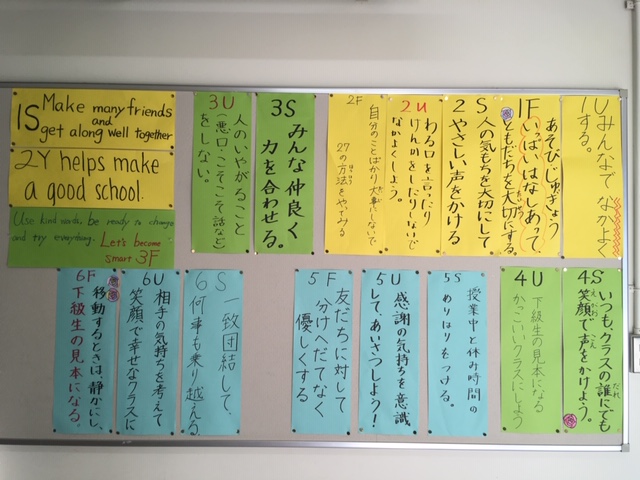 1S Make many friends
and
get along well together
2Y helps make
a good school.
Use kind words, be ready to change
and try everything. Let's become
smart 3F
1U
みんなで なかよく
する。
1F
あそび じゅぎょう
いっぱい はなしあって、
ともだちを大切にする。
2S
人の気もちを大切にして
やさしい声をかける
2U
わる口を言ったり
けんかをしたりしないで
なかよくしよう。
2F
自分のことばかり大事にしないで
27の方法をやってみる
3S
みんな仲良く
力を合わせる。
3U
人のいやがること
(悪口・こそこそ話など)
をしない。
4S
いつも、クラスの誰にでも
笑顔で声をかけよう。
4U
下級生の見本になる
かっこいいクラスにしよう
5S
授業中と休み時間の
めりはりをつける。
5U
感謝の気持ちを意識
して、あいさつしよう!
5F
友だちに対して
分けへだてなく
優しくする
6S
一致団結して、
何事も乗り越える
6U
相手の気持ちを考えて
笑顔で幸せなクラスに
6F
移動するときは、静かにし、
下級生の見本になる。